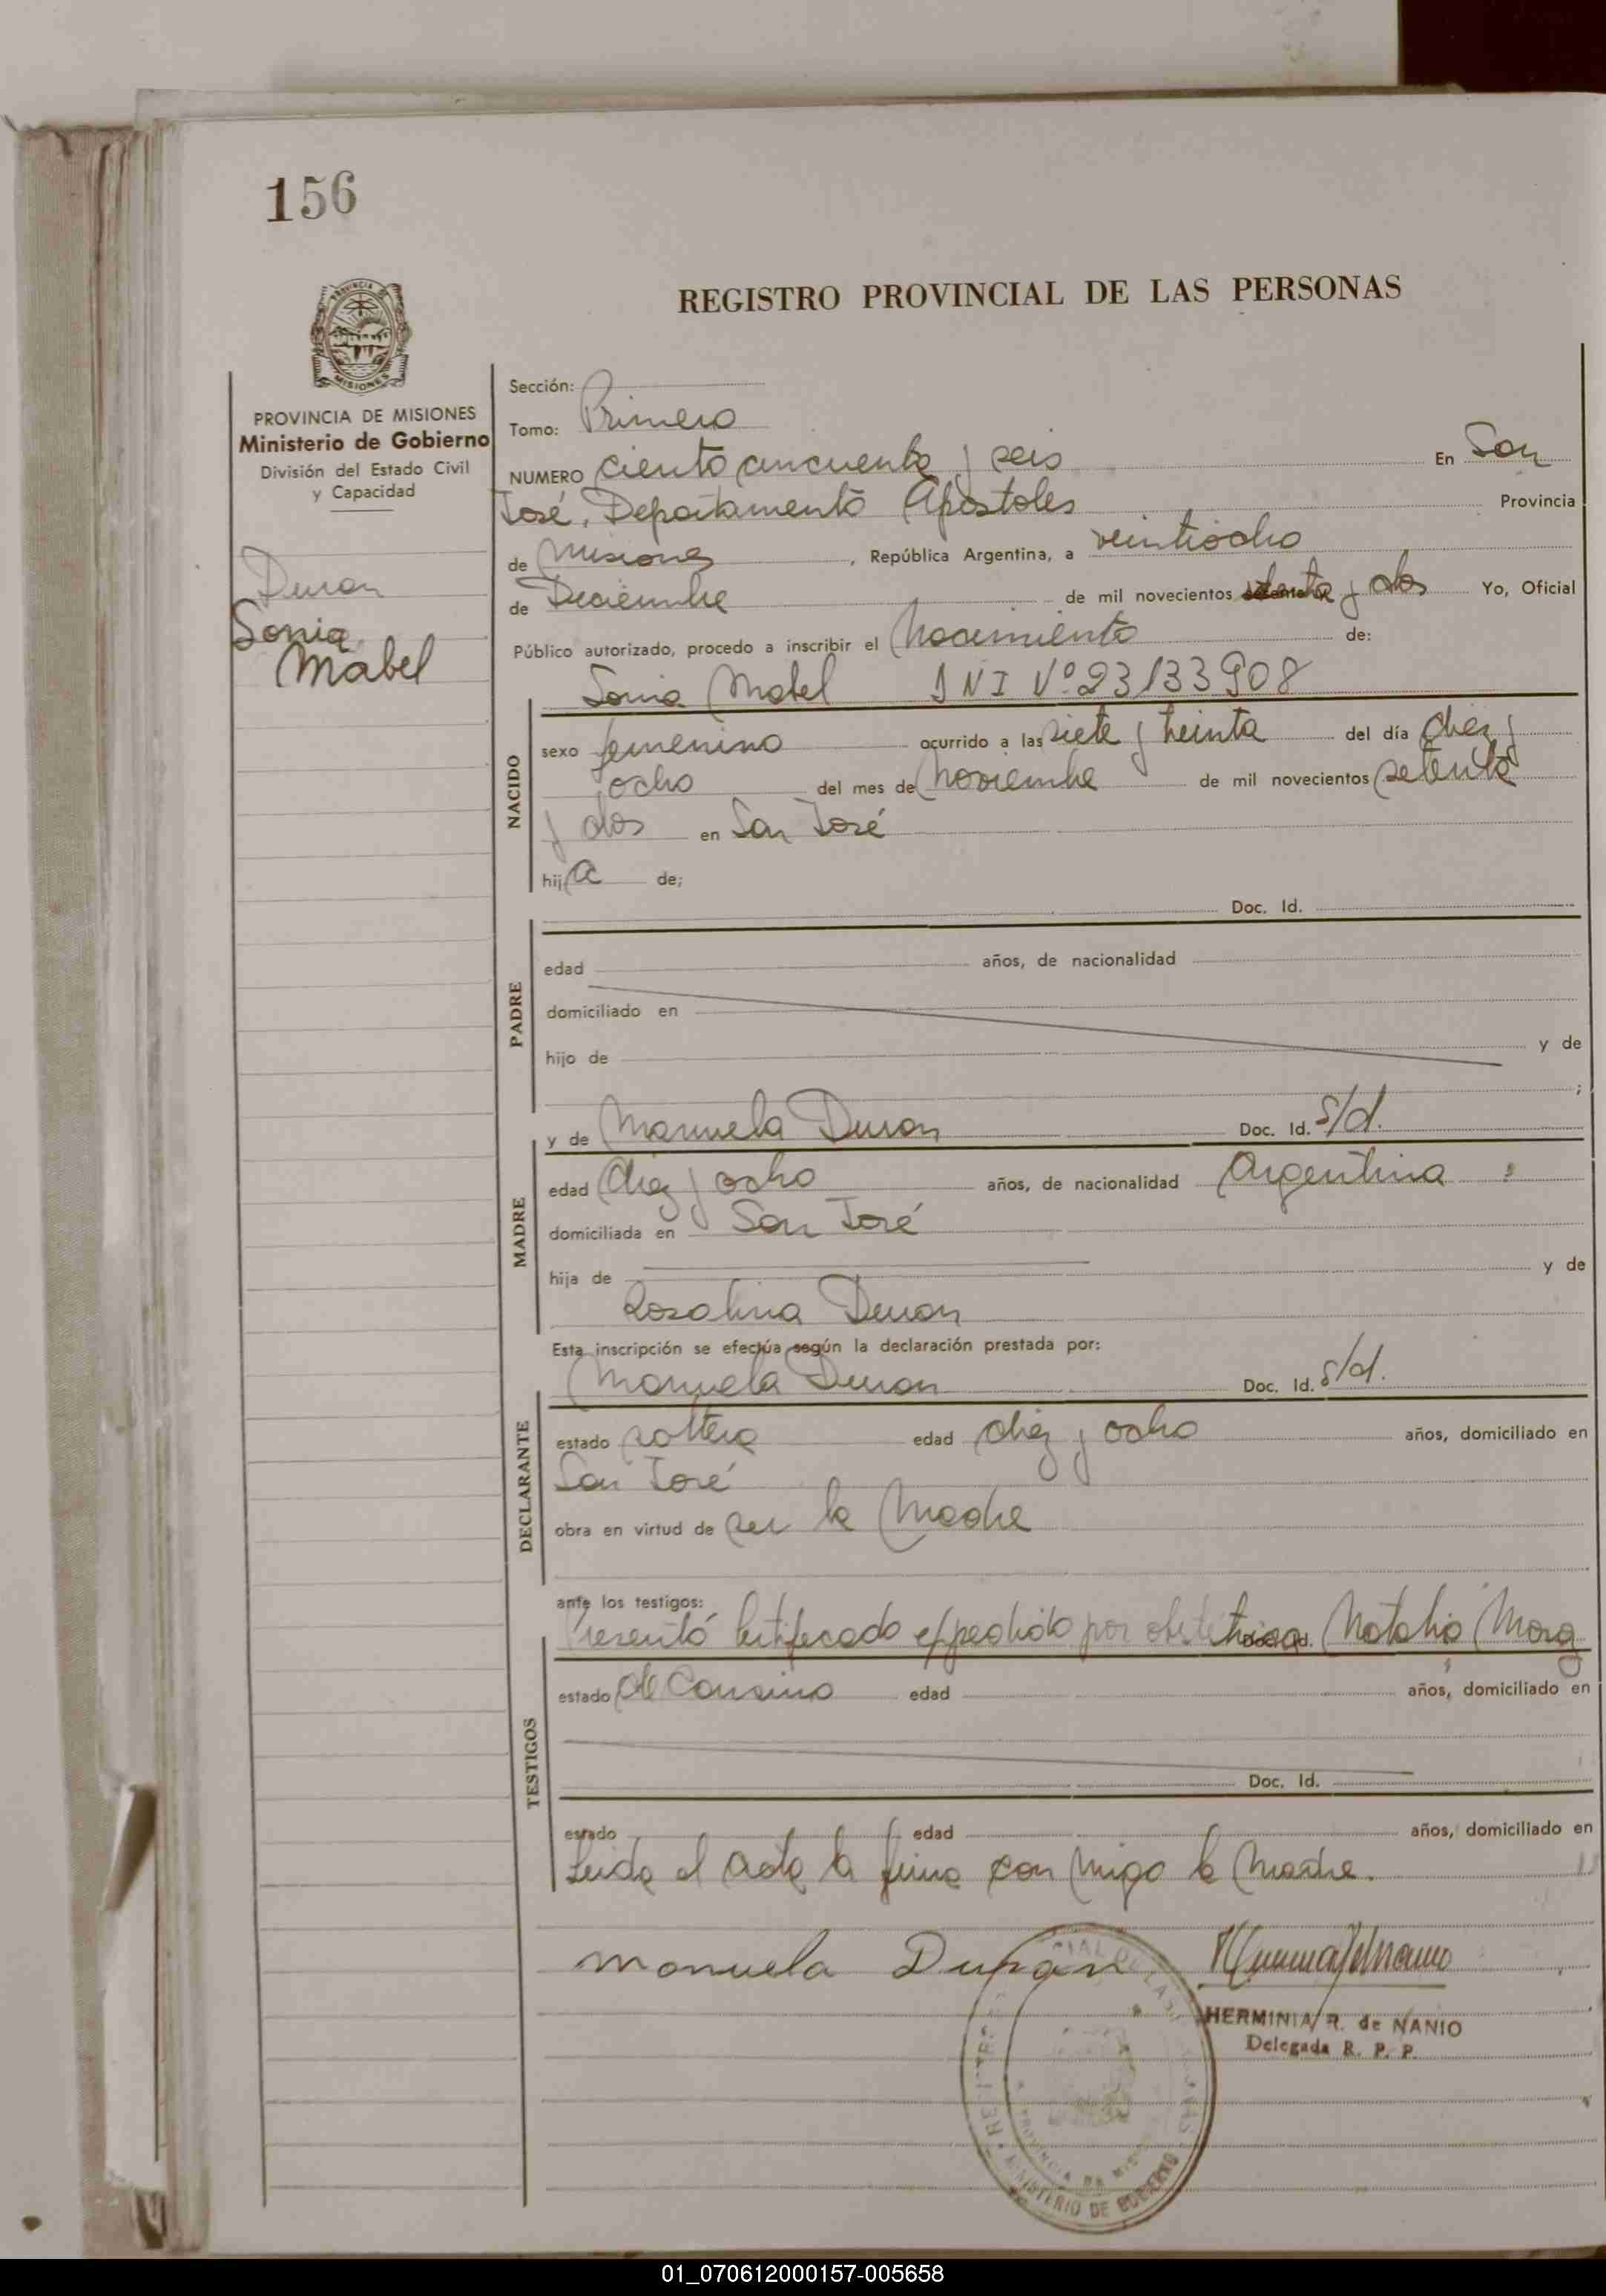 156
REGISTRO PROVINCIAL DE LAS PERSONAS
PROVINCIA DE MISIONES
MISIONES
PROVINCIA DE MISIONES
Ministerio de Gobierno
División del Estado Civil
y Capacidad
Duran
Sonia
Mabel
Sección:
Tomo: Primero
NUMERO ciento cincuenta y seis En San
José, Departamento Apóstoles Provincia
de Misiones, República Argentina, a veintiocho
de Diciembre de mil novecientos setenta y dos Yo, Oficial
Público autorizado, procedo a inscribir el Nacimiento de:
Sonia Mabel DNI Nº 23133908
NACIDO
sexo femenino ocurrido a las siete y treinta del día diez y
ocho del mes de Noviembre de mil novecientos setenta
y dos en San José
hija de;
Doc. Id.
PADRE
edad años, de nacionalidad
domiciliado en
hijo de y de
;
y de Manuela Duran Doc. Id. s/d.
MADRE
edad diez y ocho años, de nacionalidad Argentina
domiciliada en San José
hija de y de
Rosalina Duran
Esta inscripción se efectúa según la declaración prestada por:
Manuela Duran Doc. Id. s/d.
DECLARANTE
estado soltera edad diez y ocho años, domiciliado en
San José
obra en virtud de ser la Madre
ante los testigos:
Presentó certificado expedido por obstétrica Natalia Mora
TESTIGOS
estado de edad años, domiciliado en
Doc. Id.
estado edad años, domiciliado en
Leida el acta la firma con migo la Madre.
Manuela Durán
HERMINIA R. de NANIO
Delegada R. P. P.
MINISTERIO DE GOBIERNO
01_070612000157-005658